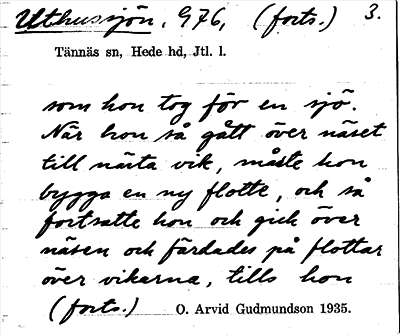 Uthussjön, 976, (forts.) 3.
Tännäs sn, Hede hd, Jtl. l.
som hon tog för en sjö.
När hon så gått över näset
till nästa vik, måste hon
bygga en ny flotte, och så
fortsatte hon och gick över
näsen och färdades på flottar
över vikarna, tills hon
(forts.) O. Arvid Gudmundson 1935.